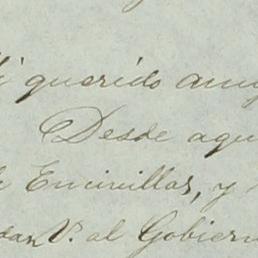 querido amig
Desde aqu
Encinillas, y
V. al Gobiern